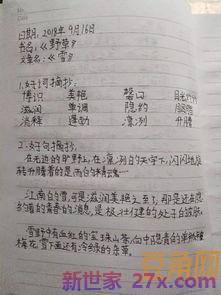 日期：2018年9月16日
书名：《野草》
文章名：《雪》
1. 好词摘抄：
博识 美艳 磬口
滋润 单调 隐约 胭脂
消释 蓬勃 凛冽 升腾
2. 好句摘抄：
在无边的旷野上，在凛冽的天宇下，闪闪地旋
转升腾着的是雨的精魂……
江南的雪，可是滋润美艳之至了，那是还在隐
约着的青春的消息，是极壮健的处子的皮肤。
雪野中有血红的宝珠山茶，白中隐青的单瓣
梅花，雪下面还有冷绿的杂草。
新世家 27x.com